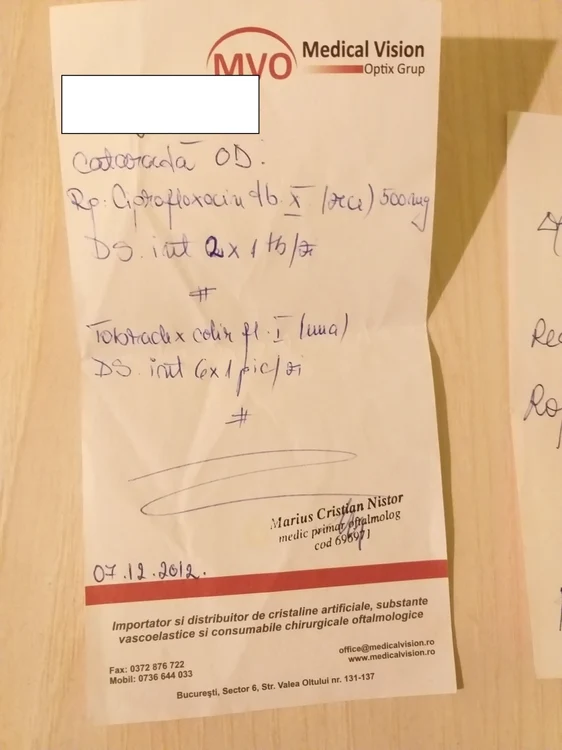 MVO Medical Vision
Optix Grup
Cataractă OD.
Rp. Ciprofloxacin tb. X (zece) 500mg
DS. int 2x1 tb/zi
#
Tobradex colir fl. I (una)
DS. int 6x1 pic/zi
#
Marius Cristian Nistor
medic primar oftalmolog
cod 696971
07.12.2012.
Importator si distribuitor de cristaline artificiale, substante
vascoelastice si consumabile chirurgicale oftalmologice
Fax: 0372 876 722
Mobil: 0736 644 033
office@medicalvision.ro
www.medicalvision.ro
București, Sector 6, Str. Valea Oltului nr. 131-137